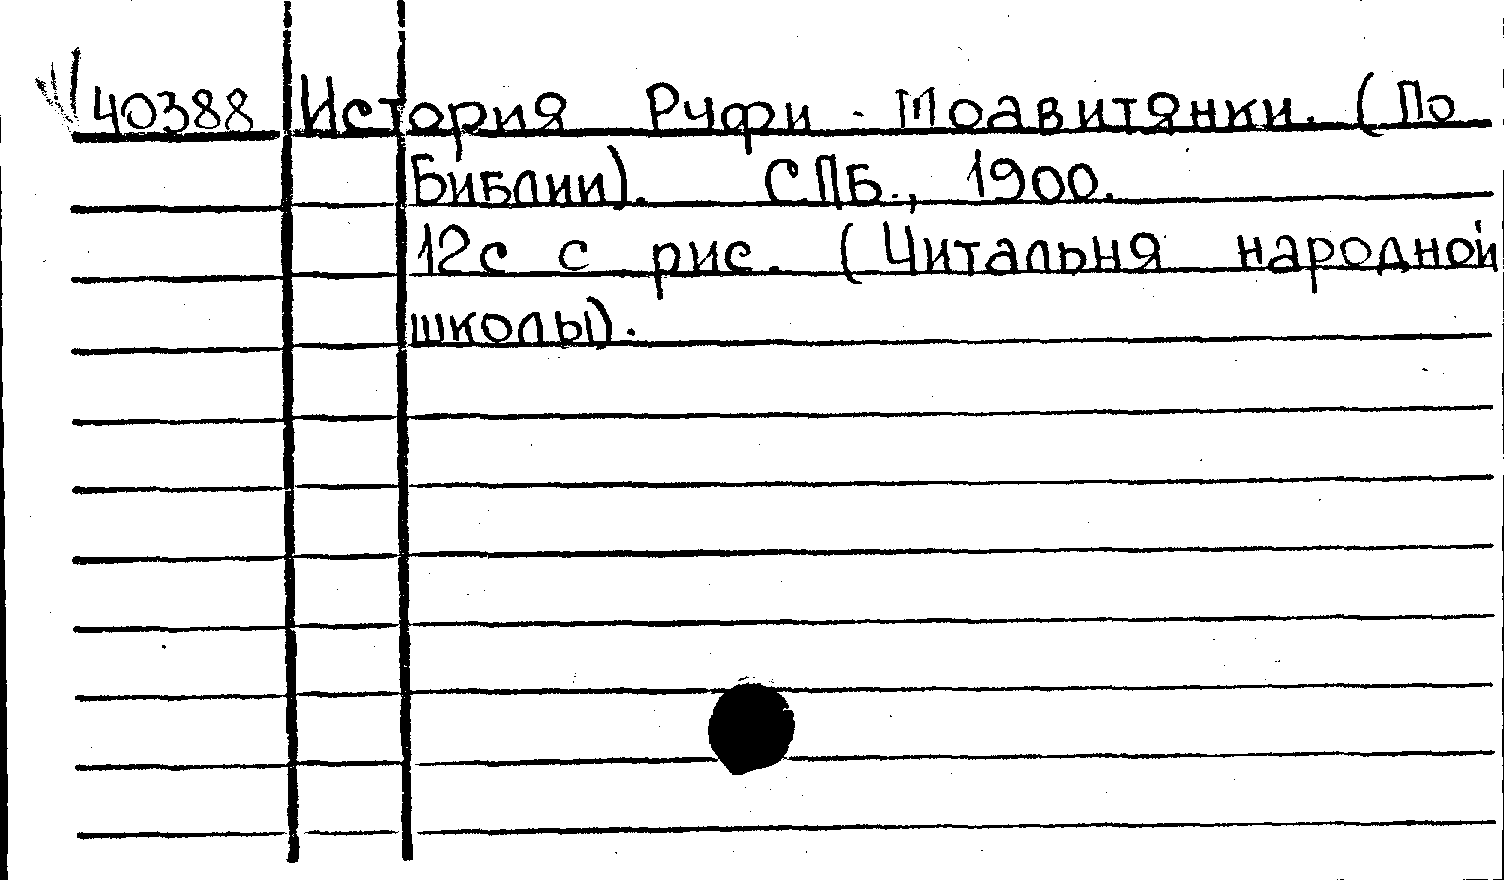 40388 История Руфи - Моавитянки. (По
Библии). СПБ., 1900.
12с с рис. (Читальня народной
школы).